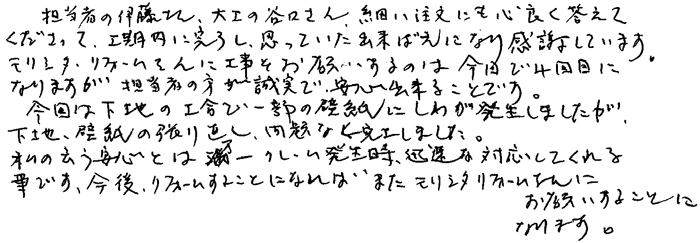 担当者の伊藤さん、大工の谷口さん、細い注文にも心良く答えて
くださって、工期内に完了し、思っていた出来ばえになり感謝しています。
モリシタ・リフォームさんに工事をお願いするのは今回で4回目に
なりますが担当者の方が誠実で、安心出来ることです。
今回は下地の工合で一部の壁紙にしわが発生しましたが、
下地、壁紙の張り直し、問題なく完工しました。
私の云う安心とは万一クレーム発生時、迅速な対応してくれる
事です。今後、リフォームすることになればまたモリシタリフォームさんに
お願いすることに
なります。